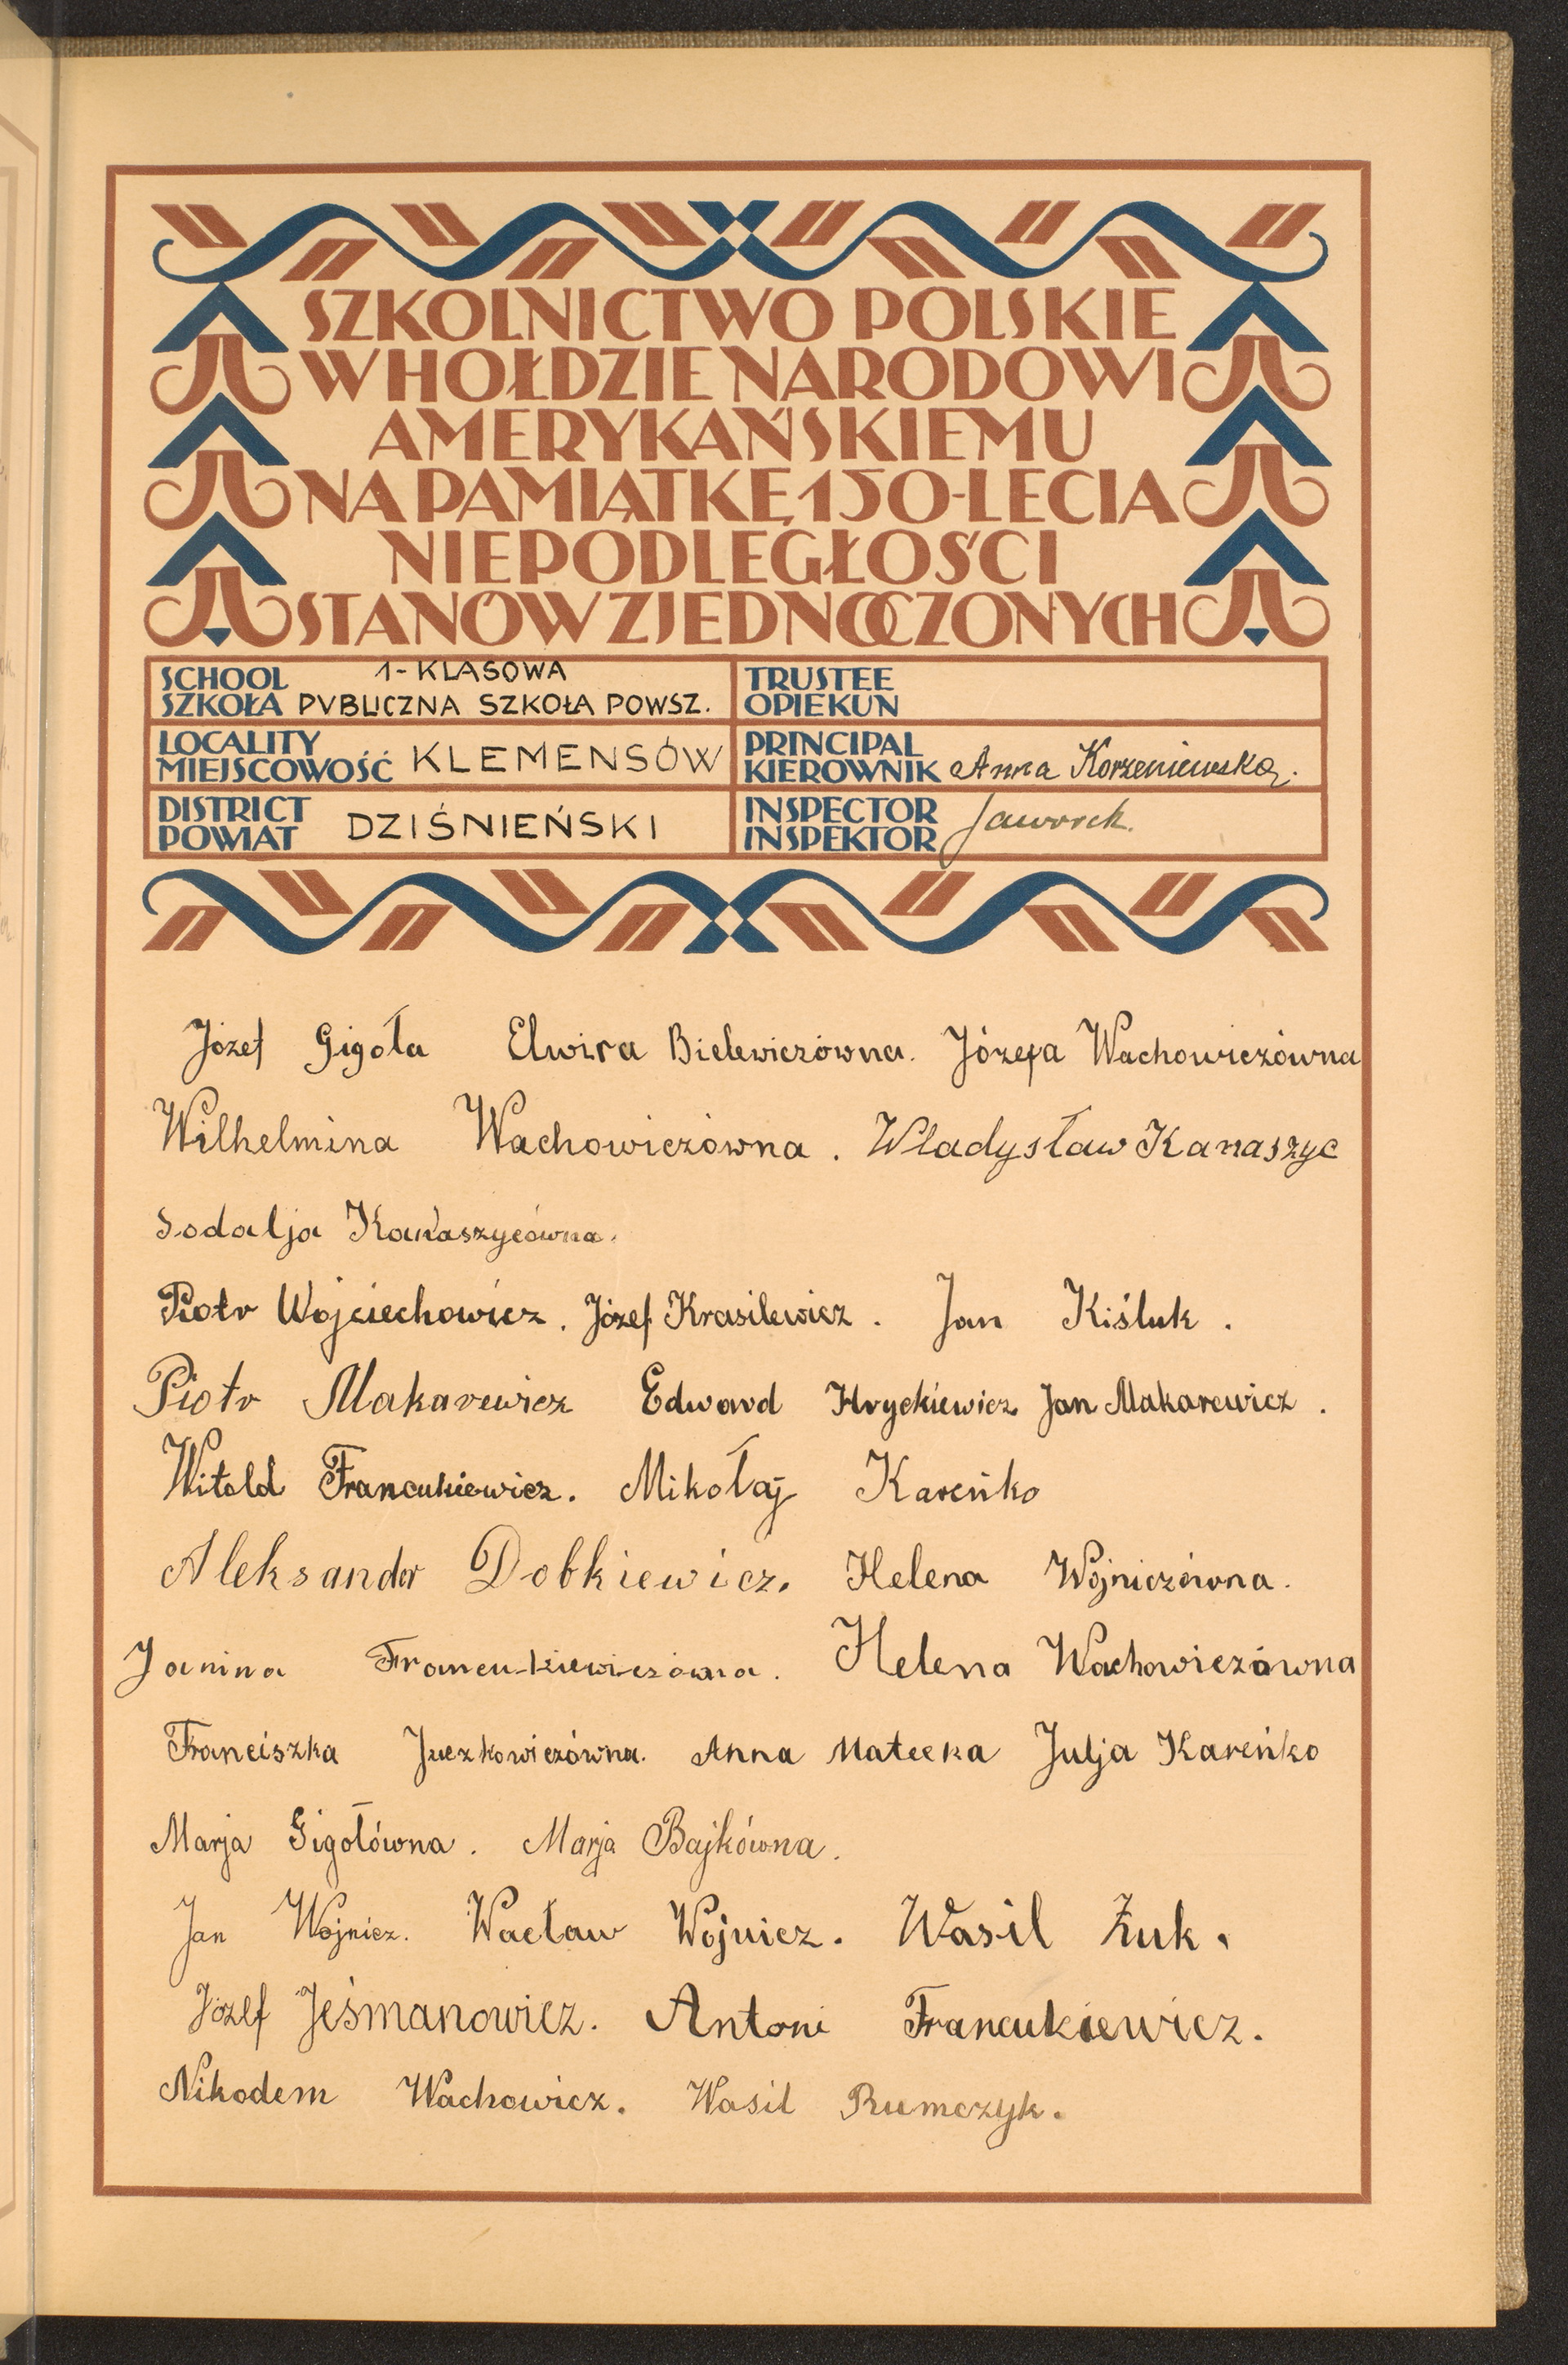 SZKOLNICTWO POLSKIE
W HOŁDZIE NARODOWI
AMERYKAŃSKIEMU
NA PAMIĄTKĘ 150-LECIA
NIEPODLEGŁOŚCI
STANÓW ZJEDNOCZONYCH
SCHOOL
SZKOŁA
1-KLASOWA
PVBLICZNA SZKOŁA POWSZ.
TRUSTEE
OPIEKUN
LOCALITY
MIEJSCOWOŚĆ KLEMENSÓW
PRINCIPAL
KIEROWNIK Anna Korzeniewska.
DISTRICT
POWIAT DZIŚNIEŃSKI
INSPECTOR
INSPEKTOR Jaworek.
Józef Gigoła Elwira Bielewiczówna. Józefa Wachowiczówna
Wilhelmina Wachowiczówna. Władysław Kanaszyc
Kanaszycówna.
Piotr Wojciechowicz. Józef Krasilewicz. Jan Kiśluk.
Piotr Makarewicz Edward Hryckiewicz Jan Makarewicz.
Witold Francukiewicz. Mikołaj Kareńko
Aleksander Dobkiewicz. Helena Wójniczówna.
Janina Francukiewiczówna. Helena Wachowiczówna
Franciszka Juczkowiczówna. Anna Matecka Julja Kareńko
Marja Gigołówna. Marja Bajkówna.
Jan Wójnicz. Wacław Wójnicz. Wasil Żuk.
Józef Jeśmanowicz. Antoni Francukiewicz.
Nikodem Wachowicz. Wasil Rumczyk.